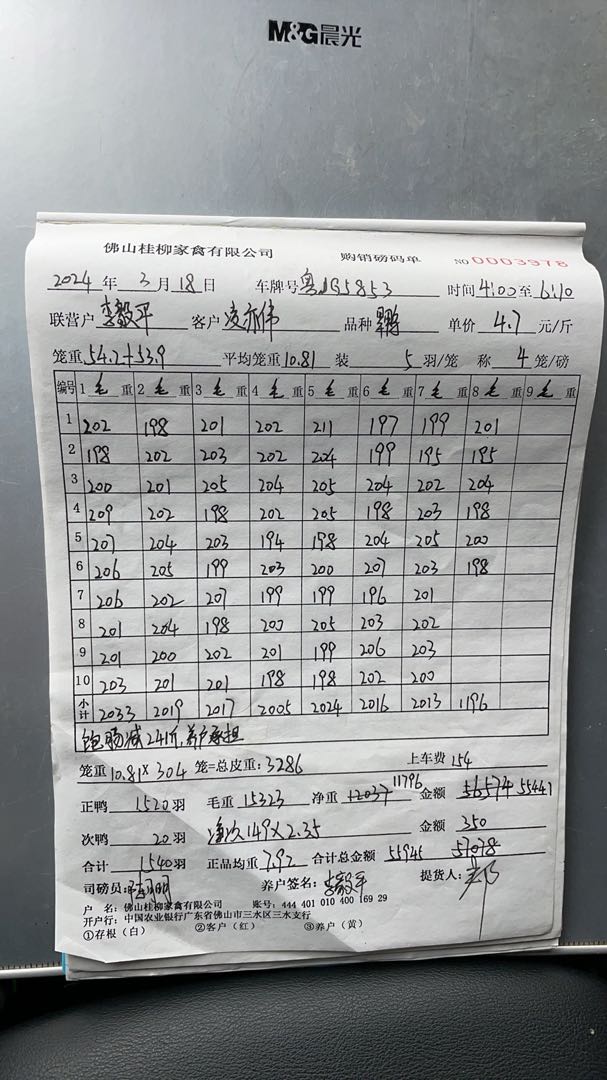 M&G晨光
佛山桂柳家禽有限公司 购销磅码单 NO 0003978
2024 年 3 月 18 日 车牌号 粤JG5853 时间 4:00 至 6:10
联营户 李毅平 客户 凌亦伟 品种 单价 4.7 元/斤
笼重 54.2+53.9 平均笼重 10.81 装 5 羽/笼 称 4 笼/磅
编号 1 毛 重 2 毛 重 3 毛 重 4 毛 重 5 毛 重 6 毛 重 7 毛 重 8 毛 重 9 毛 重
1 202 198 201 202 211 197 199 201
2 198 202 203 202 204 199 195 195
3 200 201 205 204 205 204 202 204
4 209 202 198 202 205 198 203 198
5 207 204 203 194 198 204 205 200
6 206 205 199 203 200 207 203 198
7 206 202 207 199 199 196 201
8 201 204 198 200 205 203 202
9 201 200 202 201 199 206 203
10 203 201 201 198 198 202 200
小计 2033 2019 2017 2005 2024 2016 2013 1196
饱肠减241斤,养户承担
笼重 10.81 × 304 笼=总皮重: 3286 上车费 154
正鸭 1520 羽 毛重 15323 净重 12037 11796 金额 56574 55441
次鸭 20 羽 净次149×2.35 金额 350
合计 1540 羽 正品均重 7.92 合计总金额 55945 57078
司磅员: 养户签名: 李毅平 提货人:
户 名: 佛山桂柳家禽有限公司 账号: 444 401 010 400 169 29
开户行: 中国农业银行广东省佛山市三水区三水支行
①存根(白) ②客户(红) ③养户(黄)